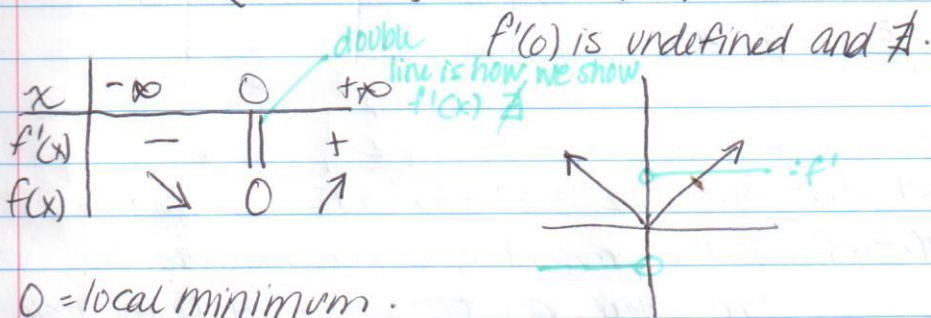 f'(0) is undefined and ∄.
double
line is how we show
f'(x) ∄
x -∞ 0 +∞
f'(x) - || +
f(x) ↘ 0 ↗
: f'
0 = local minimum.